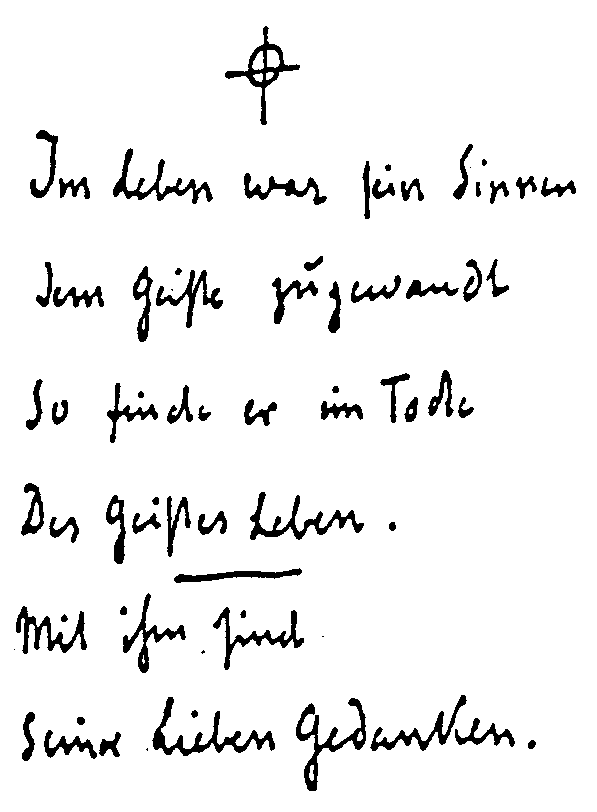 Im Leben war sein Sinnen
Dem Geiste zugewandt
So finde er im Tode
Des Geistes Leben.
Mit ihm sind
Seine Lieben Gedanken.